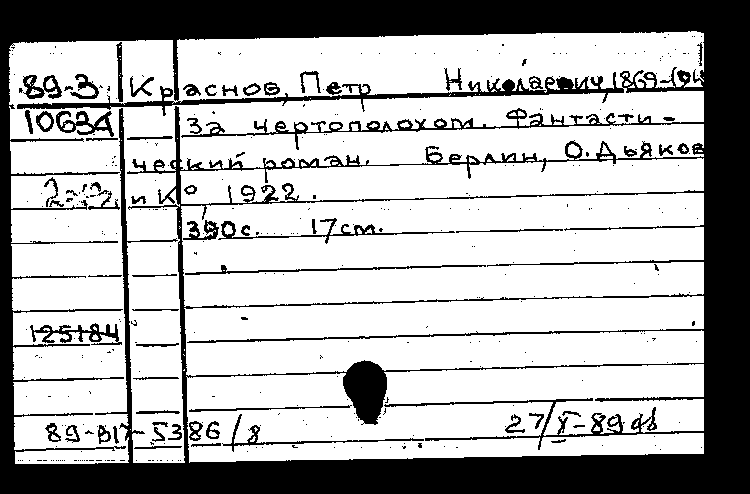 89-3 Краснов, Петр Николаевич, 1869-
10634 За чертополохом. Фантасти-
ческий роман. Берлин, О. Дьяков
и К° 1922.
390 с. 17 см.
125184
89-В17-5386/8 27/X-89